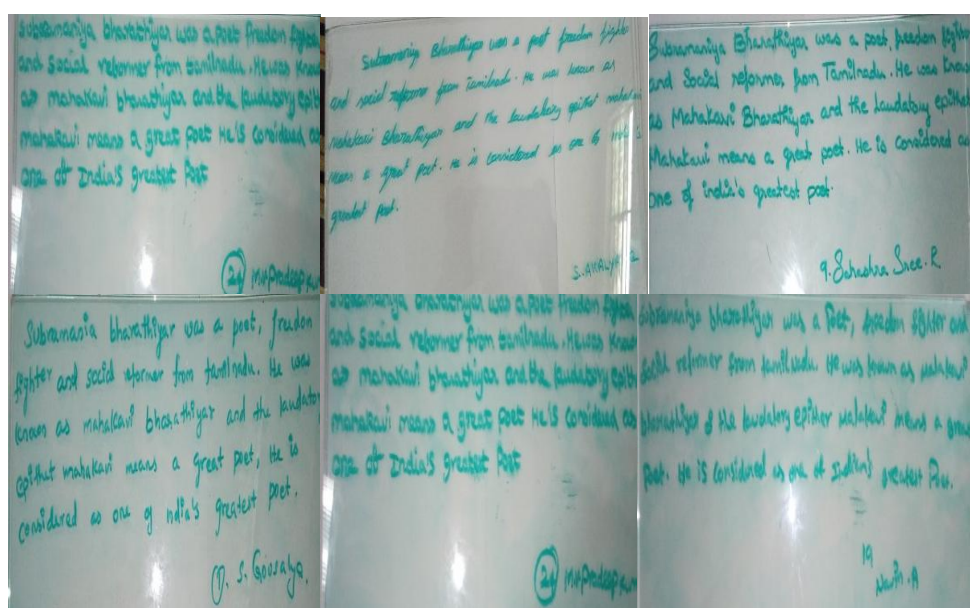 Subramaniya bharathiyar was a poet freedom fighter
and Social reformer from tamilnadu. He was know
as mahakavi bharathiyar and the laudatory epith
mahakavi means a great poet He is considered as
one of India's greatest Poet
24 M.V.Pradeep
Subramaniy Bharathiyar was a poet freedom fighte
and social reformer from Tamilnadu. He was known as
mahakavi Bharathiyar and the laudatory epithet
means a great poet. He is considered as one
greatest poet.
S. AKALYA 2
Subramaniya Bharathiyar was a poet, freedom fighter
and Social reformer from Tamilnadu. He was know
as Mahakavi Bharathiyar and the Laudatory epithet
Mahakavi means a great poet. He is considered as
one of india's greatest poet.
9. Sahashra Sree. R
Subramania bharathiyar was a poet, freedom
fighter and social reformer from tamilnadu. He was
known as mahakavi bharathiyar and the laudator
epithet mahakavi means a great poet, He is
considered as one of india's greatest poet.
1. S. Gousalya.
Subramaniya bharathiyar was a poet freedom fighter
and Social reformer from tamilnadu. He was know
as mahakavi bharathiyar and the laudatory epith
mahakavi means a great poet He is considered as
one of India's greatest Poet
24 M.V.Pradeep
Subramaniya bharathiyar was a Poet, freedom fighter and
Social reformer from tamilnadu. He was known as mahakavi
bharathiyar & the laudatory epither mahakavi means a grea
Poet. He is considered as one of Indian's greatest Poet.
19
Navin. A